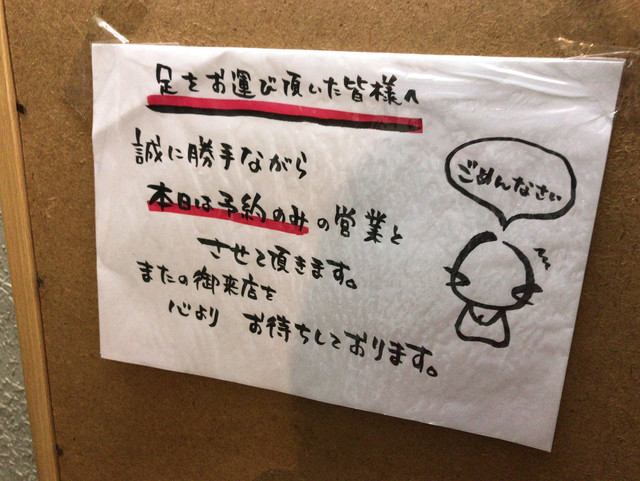 足をお運び頂いた皆様へ
誠に勝手ながら
本日は予約のみの営業と
させて頂きます。
またの御来店を
心より お待ちしております。
ごめんなさい